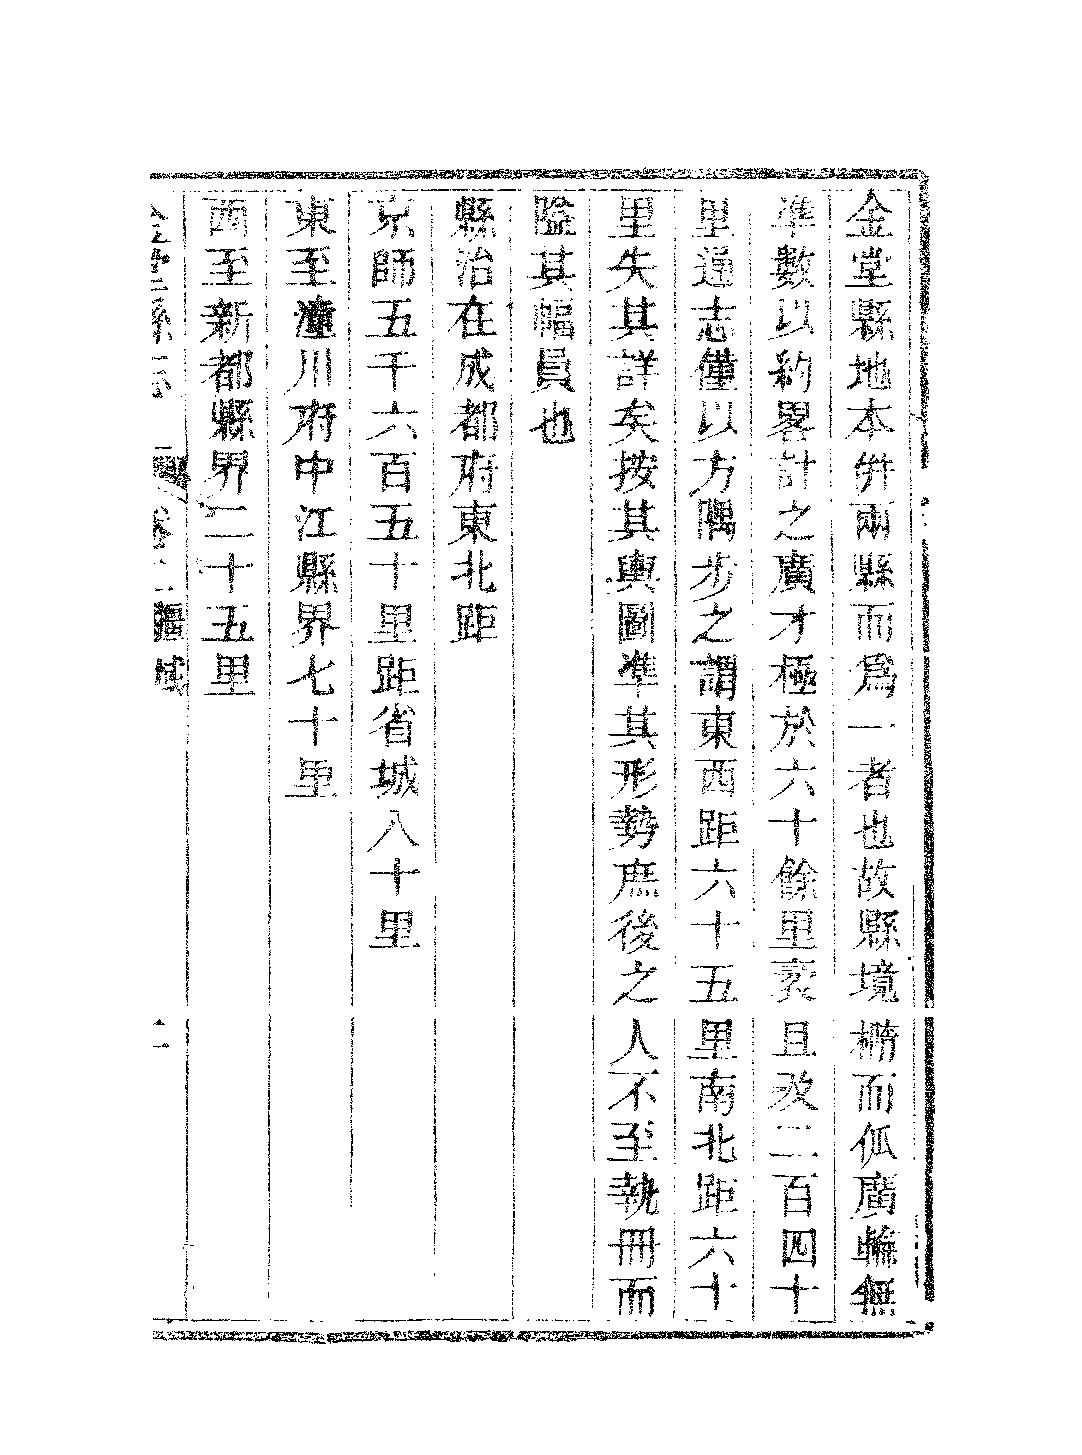 金堂縣地本併兩縣而爲一者也故縣境橢而㧓廣輪無
準數以約畧計之廣才極於六十餘里袤且及二百四十
里通志僅以方隅步之謂東西距六十五里南北距六十
里失其詳矣按其輿圖準其形勢庶後之人不至執冊而
隘其幅員也
縣治在成都府東北距
京師五千六百五十里距省城八十里
東至潼川府中江縣界七十里
西至新都縣界二十五里
金堂縣志 卷二疆域 二